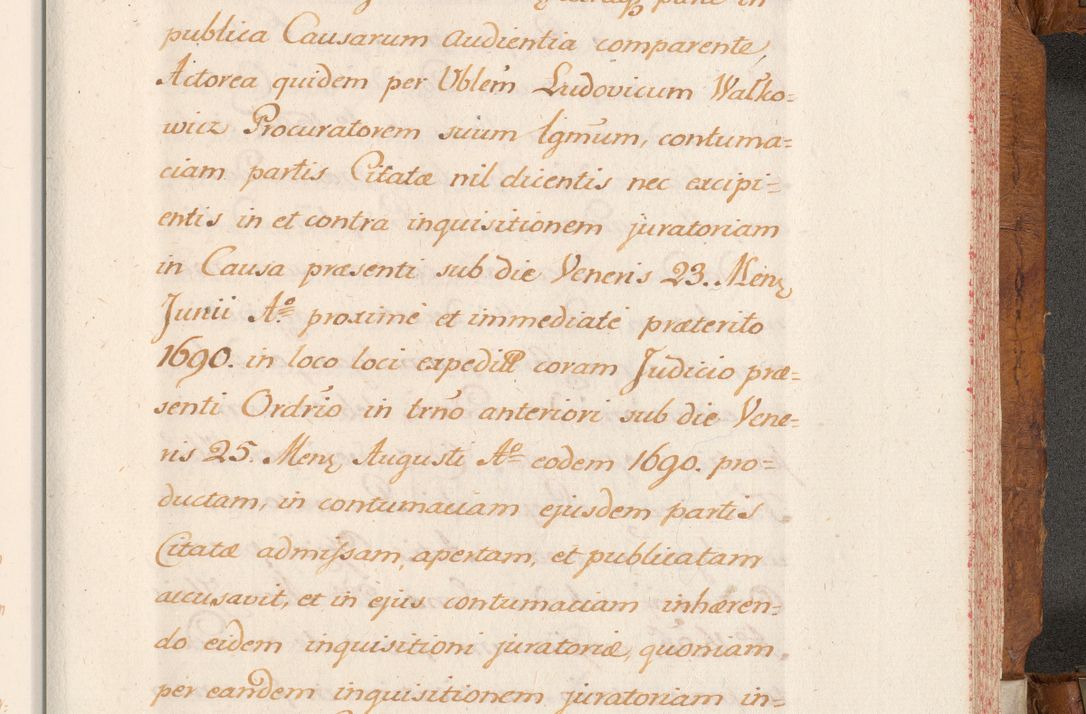 publica Causarum Audientia comparente,
Actorea quidem per Nblem̃ Ludovicum Walko=
wicz Procuratorem suum lgm̃um, contuma=
ciam partis Citatæ nil dicentis nec excipi=
entis in et contra inquisitionem juratoriam
in Causa præsenti sub die Veneris 23. Mens
Junii Aº proxime et immediate præterito
1690. in loco loci expedit coram Judicio præ=
senti Ordrio in trno anteriori sub die Vene=
ris 25. Mens Augusti Aº eodem 1690. pro=
ductam, in contumaciam ejusdem partis
Citatæ admissam, apertam, et publicatam
accusavit, et in ejus contumaciam inhæren=
do eidem inquisitioni juratoriæ, quoniam
per eandem inquisitionem juratoriam in=